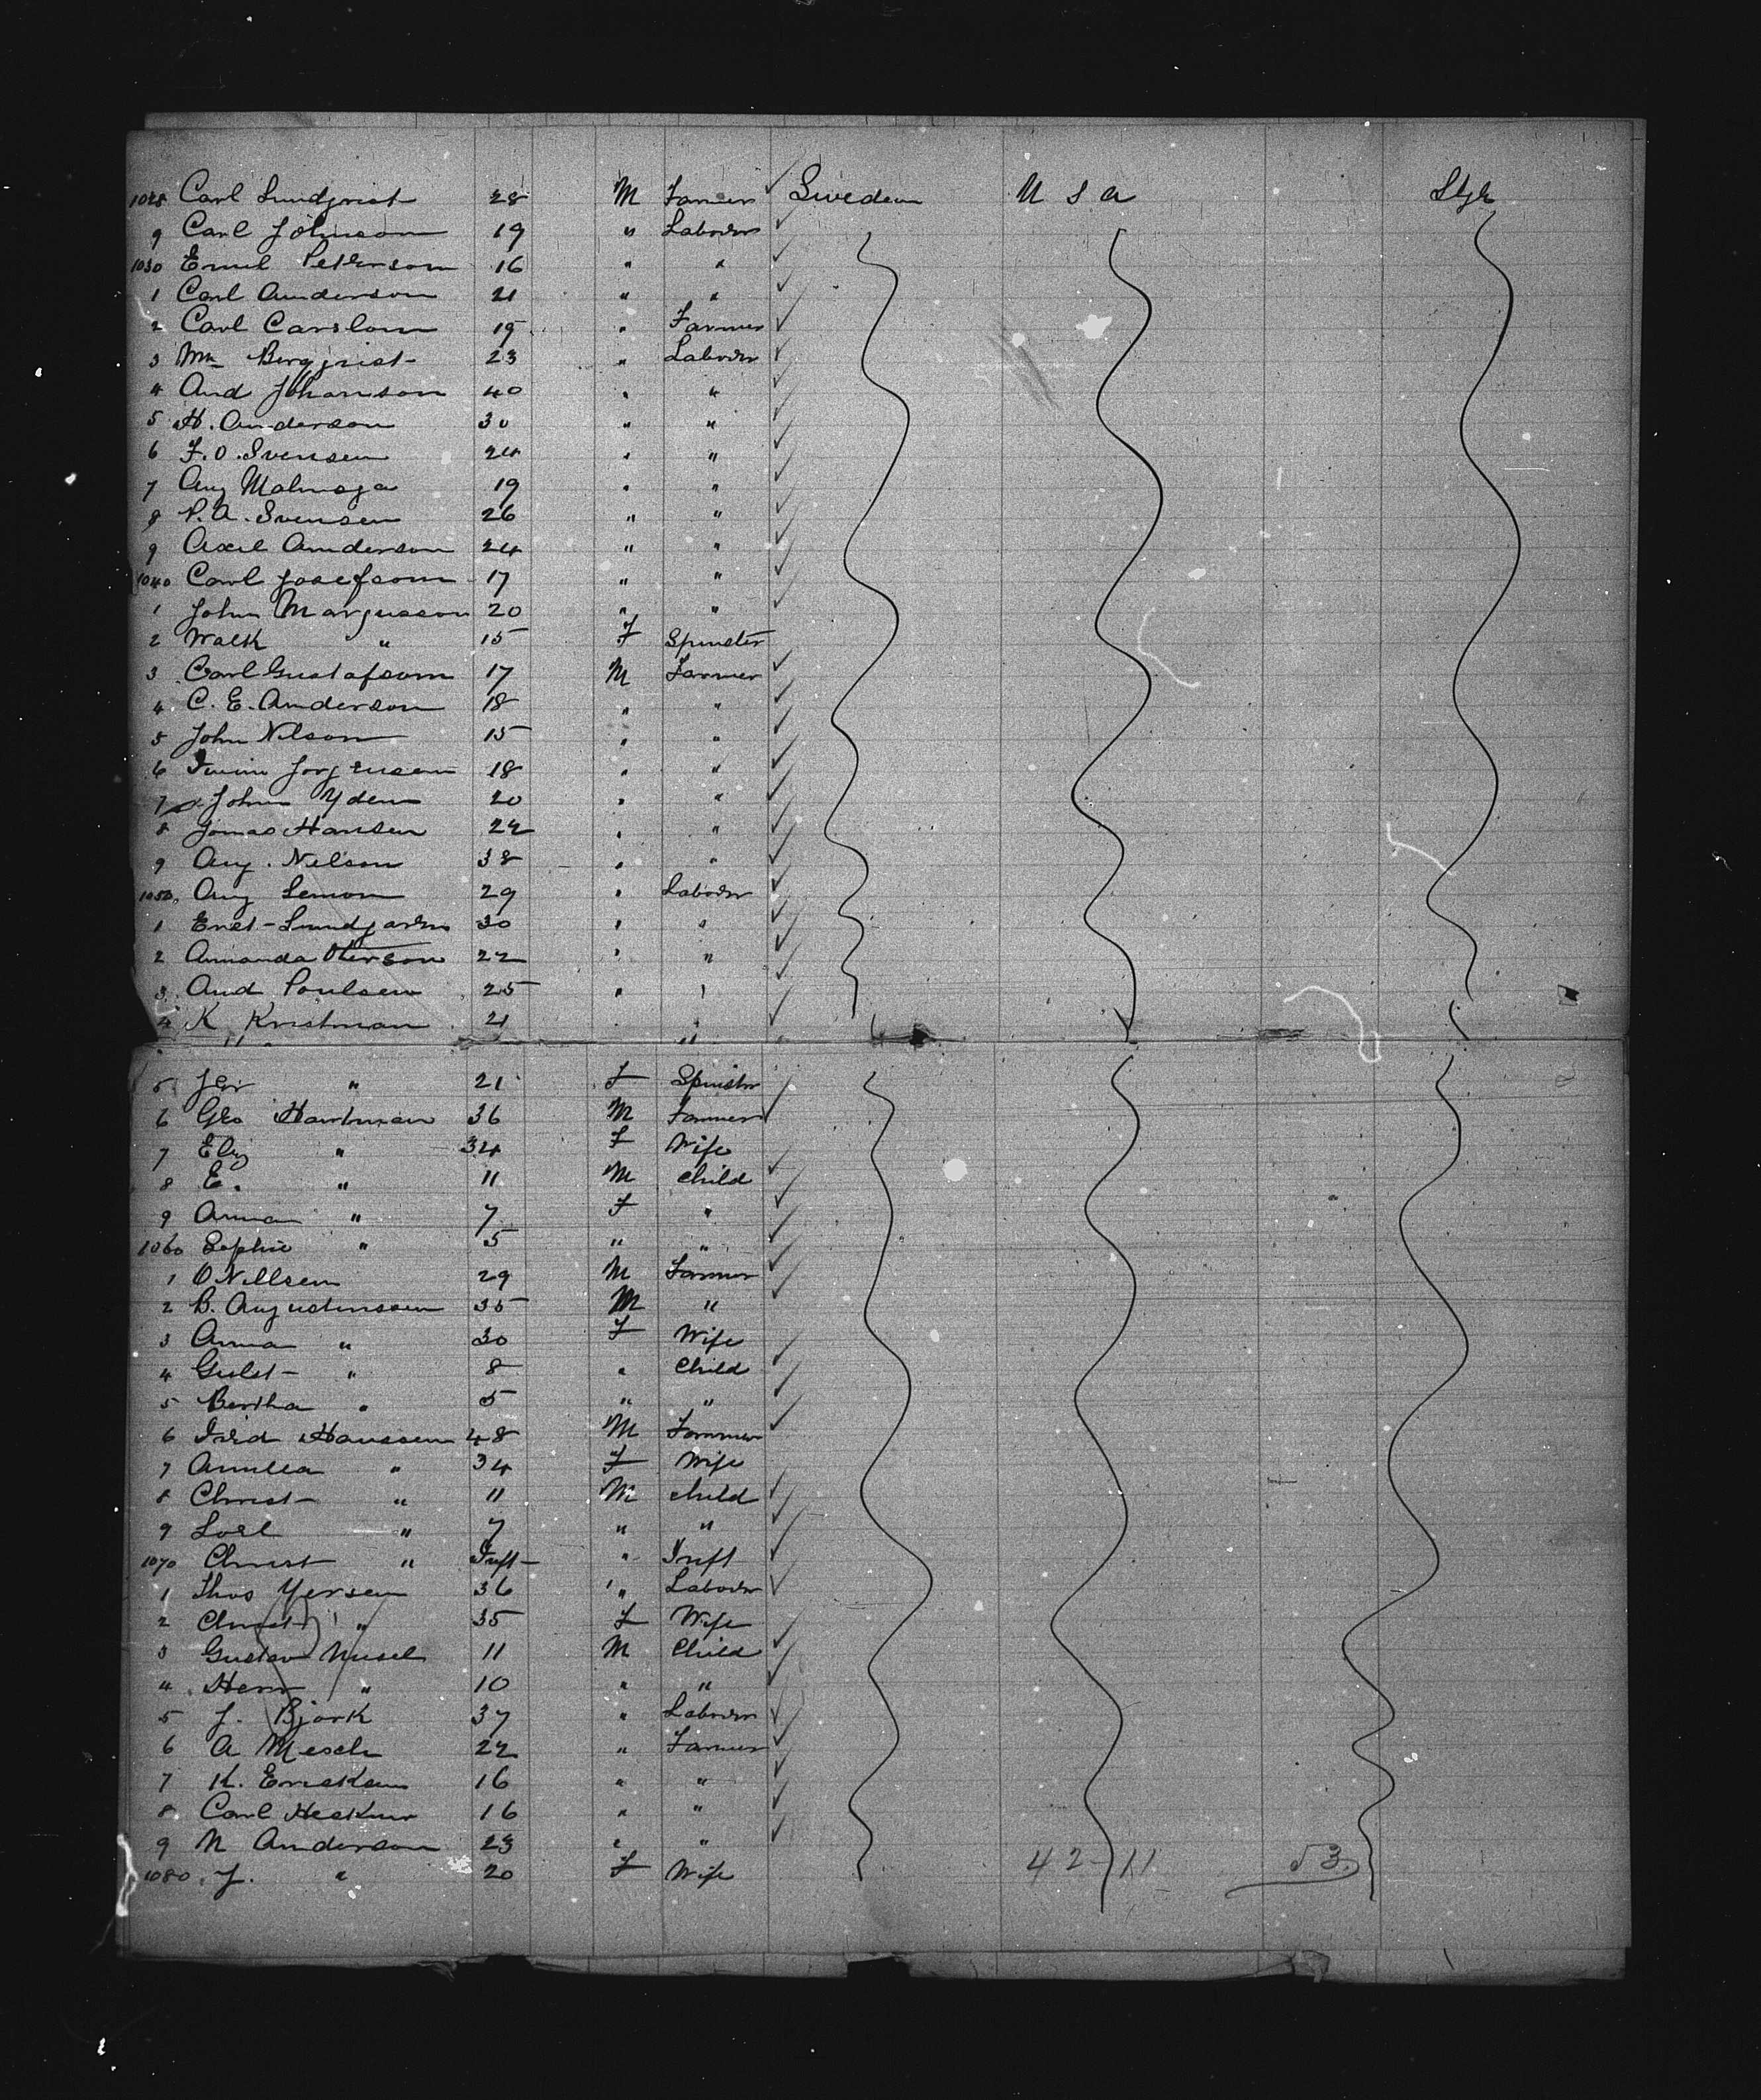 1028 Carl Lundqvist 28 M Farmer ✓ Sweden U S A Stge
9 Carl Johnson 19 " Laborer ✓
1030 Emil Peterson 16 " " ✓
1 Carl Anderson 21 " " ✓
2 Carl Carslom 19 " Farmer ✓
3 Mn Bergqvist 23 " Laborer ✓
4 And Johanson 40 " " ✓
5 H. Anderson 30 " " ✓
6 F. O. Svensen 24 " " ✓
7 Aug Malmsga 19 " " ✓
8 P. A. Svensen 26 " " ✓
9 Axel Anderson 24 " " ✓
1040 Carl Josefsom 17 " " ✓
1 John Margusson 20 " " ✓
2 Walk " 15 F Spinster
3 Carl Gustafsom 17 M Farmer ✓
4 C. E. Anderson 18 " " ✓
5 John Nilson 15 " " ✓
6 Jorgensen 18 " " ✓
7 John Yden 20 " " ✓
8 Jonas Hansen 22 " " ✓
9 Aug. Nelson 38 " " ✓
1050 Aug Lemon 29 " Laborer ✓
1 Enst Lundgarn 30 " " ✓
2 Amanda Oterson 22 " " ✓
3 And Poulsen 25 " " ✓
4 K Kristman 21 " ✓
5 " 21 F Spinster ✓
6 Geo Hartman 36 M Farmer ✓
7 Eliz " 34 F Wife
8 E. " 11 M Child ✓
9 Anna " 7 F " ✓
1060 Sophie " 5 " " ✓
1 O Nillsen 29 M Farmer ✓
2 B. Augustinssen 35 M " ✓
3 Anna " 30 F Wife ✓
4 Gulst " 8 " Child ✓
5 Bertha " 5 " " ✓
6 Hanssen 48 M Farmer ✓
7 Amilia " 34 F Wife
8 Christ " 11 M Child ✓
9 Loel " 7 " " ✓
1070 Christ " Inft " Inft ✓
1 Thos Yersen 36 " Laborer ✓
2 Christ " 35 F Wife ✓
3 Gustav Nusel 11 M Child ✓
4 Herr " 10 " " ✓
5 J. Bjork 37 " Laborer ✓
6 A Mesch 22 " Farmer ✓
7 K. Eriksen 16 " " ✓
8 Carl Heskner 16 " " ✓
9 N Anderson 23 " " ✓
1080 J. " 20 F Wife 42-11 53